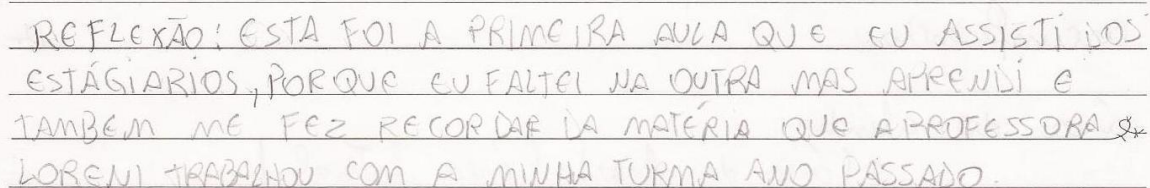 REFLEXÃO: ESTA FOI A PRIMEIRA AULA QUE EU ASSISTI DOS
ESTÁGIARIOS, PORQUE EU FALTEI NA OUTRA MAS APRENDI E
TAMBÉM ME FEZ RECORDAR DA MATÉRIA QUE A PROFESSORA
LORENI TRABALHOU COM A MINHA TURMA ANO PASSADO.